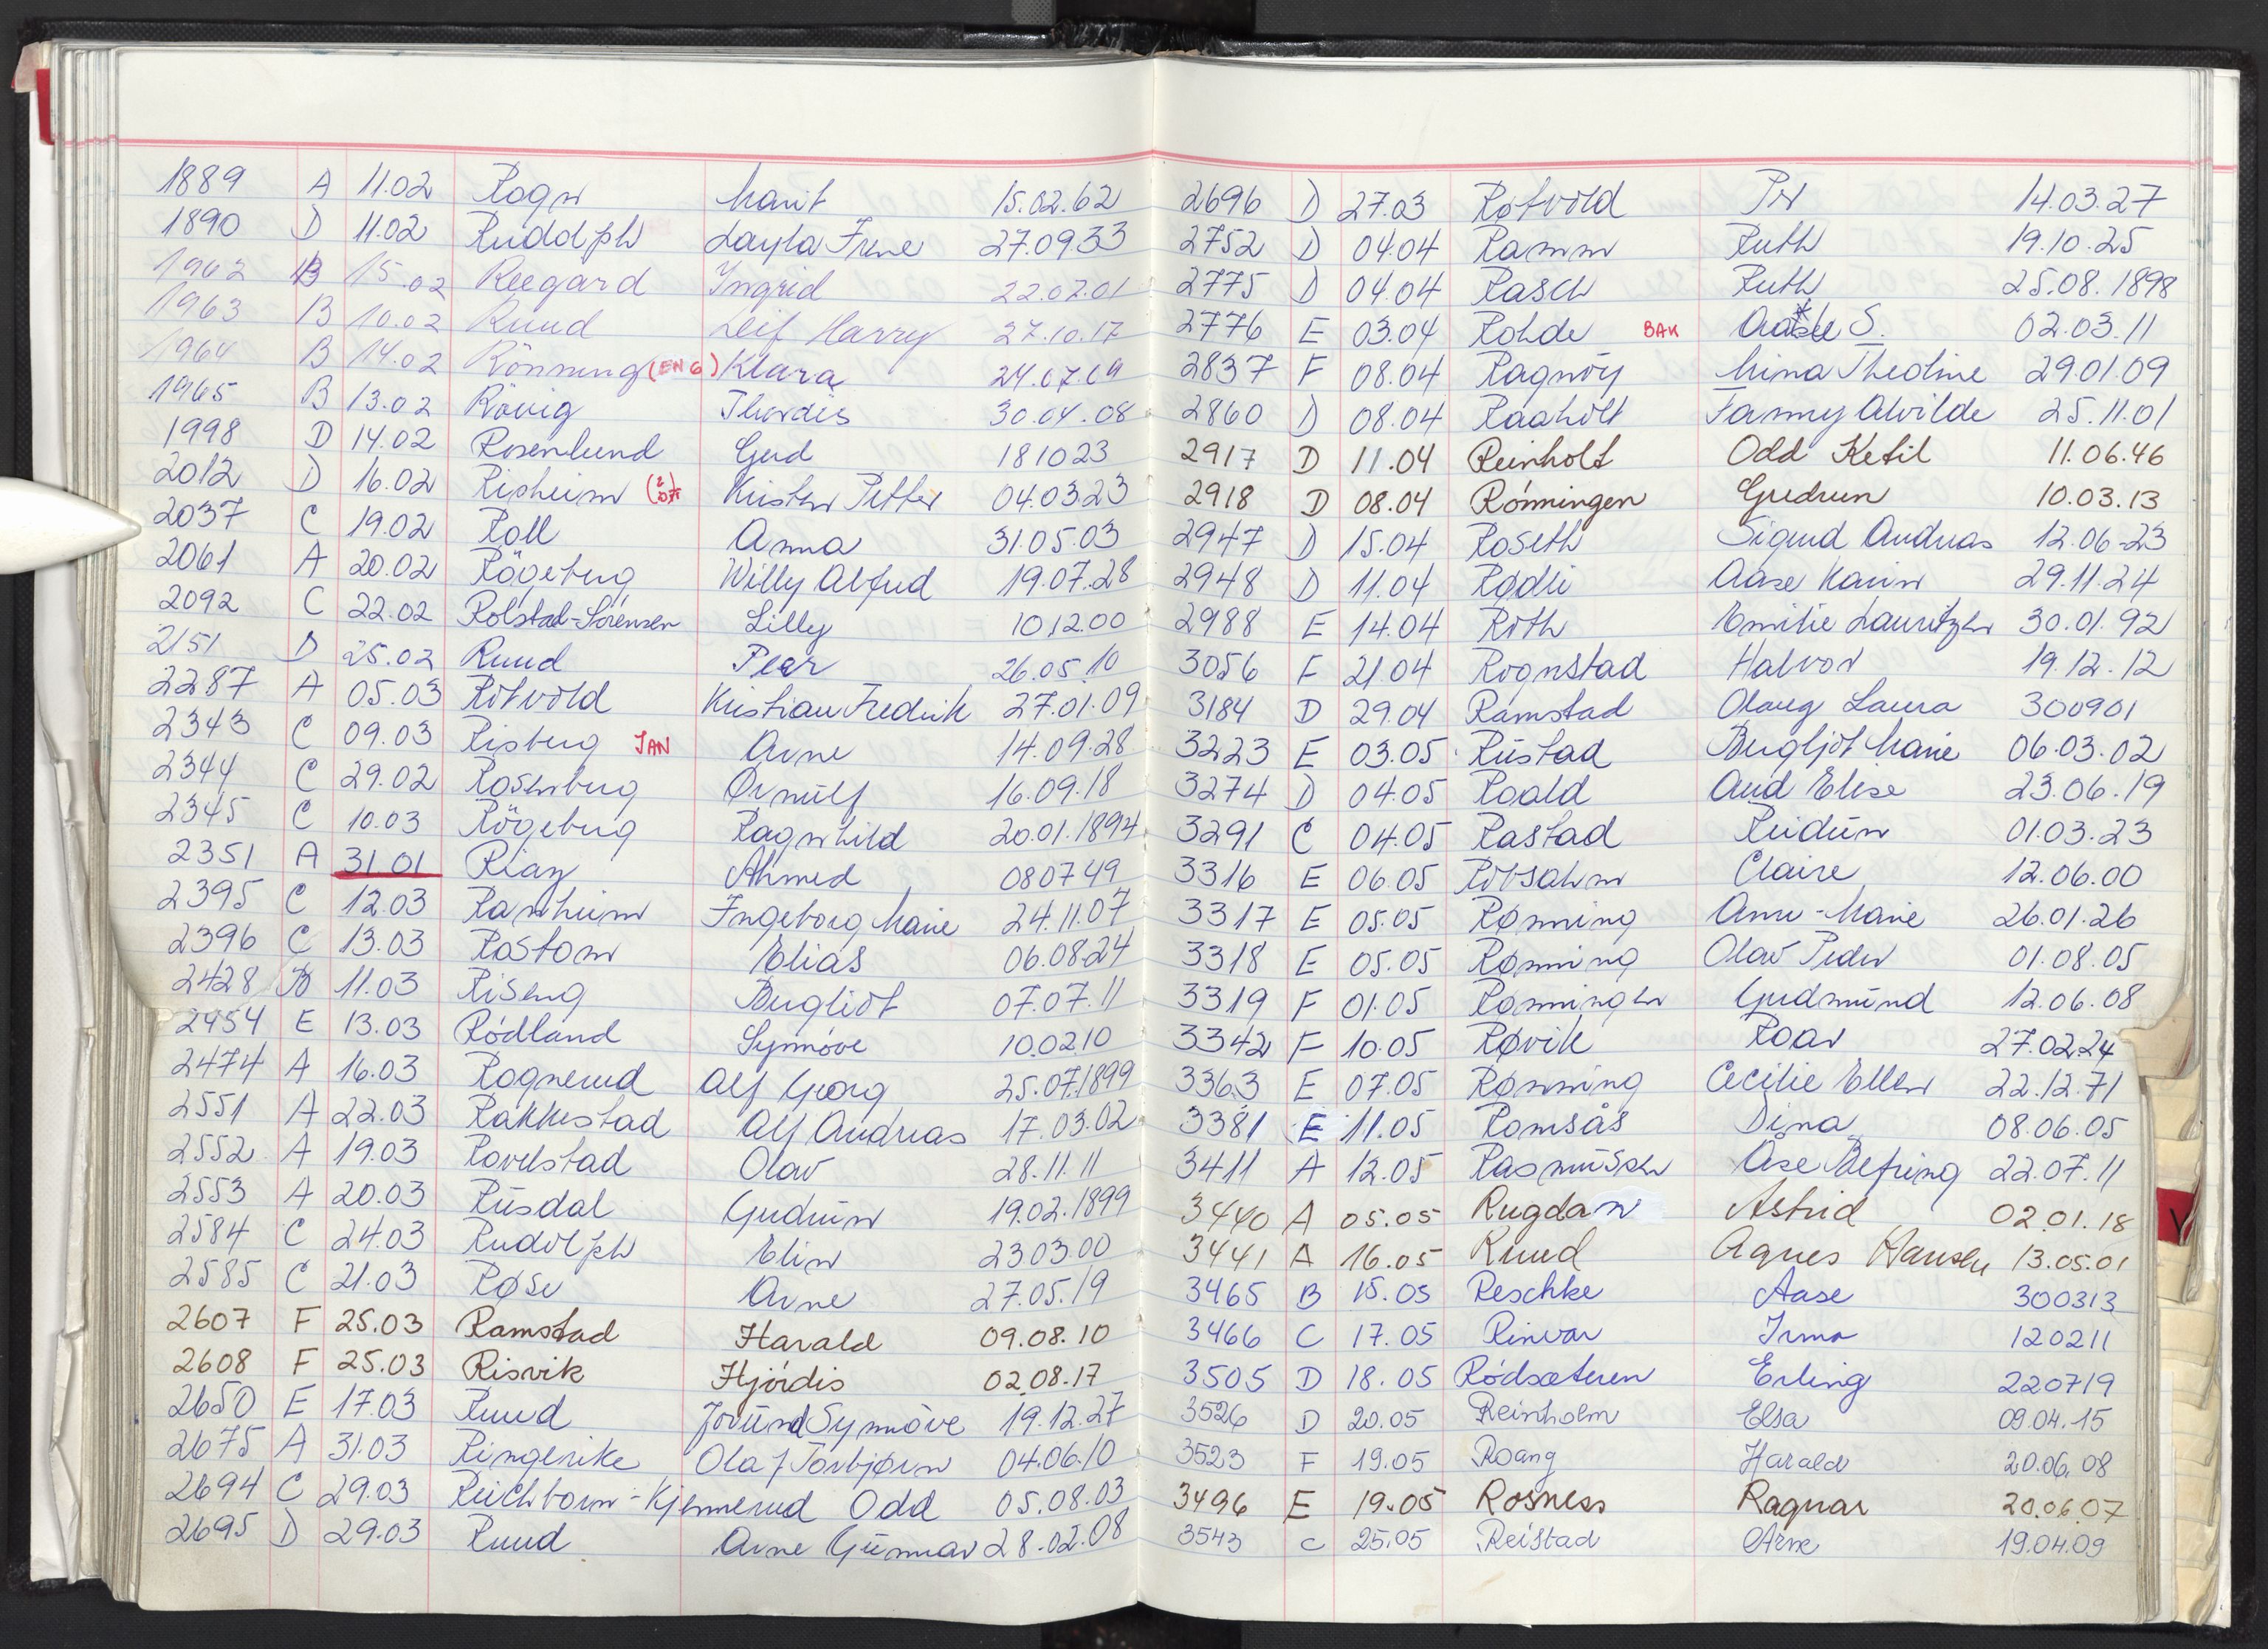 1889 A 11.02 Rogn Marit 15.02.62
1890 D 11.02 Rudolph Layla Irene 27.09.33
1962 B 15.02 Reegard Ingrid 22.02.01
1963 B 10.02 Ruud Leif Harry 27.10.17
1964 B 14.02 Rönning (EN G) Klara 24.07.09
1965 B 13.02 Rövig Thordis 30.04.08
1998 D 14.02 Rosenlund Gerd 181023
2012 D 16.02 Risheim Kristen Petter 04.03.23
2037 C 19.02 Roll Anna 31.05.03
2061 A 20.02 Rögeberg Willy Alfred 19.07.28
2092 C 22.02 Rolstad-Sörensen Lilly 101200
2151 D 25.02 Ruud Peer 26.05.10
2287 A 05.03 Rotvold Kristian Fredrik 27.01.09
2343 C 09.03 Risberg JAN Arne 14.09.28
2344 C 29.02 Rosenberg Ørnulf 16.09.18
2345 C 10.03 Rögeberg Ragnhild 20.01.1894
2351 A 31.01 Riaz Ahmed 080749
2395 C 12.03 Ranheim Ingeborg Marie 24.11.07
2396 C 13.03 Rostom Elias 06.08.24
2428 B 11.03 Riseng Bergliot 07.07.11
2454 E 13.03 Rödland Synnöve 10.02.10
2474 A 16.03 Rognerud Alf Georg 25.07.1899
2551 A 22.03 Rakkestad Alf Andreas 17.03.02
2552 A 19.03 Rovelstad Olav 28.11.11
2553 A 20.03 Rusdal Gudrun 19.02.1899
2584 C 24.03 Rudolph Elin 23.03.00
2585 C 21.03 Røse Arne 27.05.19
2607 F 25.03 Ramstad Harald 09.08.10
2608 F 25.03 Risvik Hjördis 02.08.17
2650 E 17.03 Ruud Jorund Synnöve 19.12.27
2675 A 31.03 Ringerike Olaf Torbjørn 04.06.10
2694 C 29.03 Reichborn-Kjennerud Odd 05.08.03
2695 D 29.03 Ruud Arne Gunnar 28.02.08
2696 D 27.03 Rotvold Per 14.03.27
2752 D 04.04 Ramm Ruth 19.10.25
2775 D 04.04 Rasch Ruth 25.08.1898
2776 E 03.04 Rohde BAK S. 02.03.11
2837 F 08.04 Ragnöy Mina Theoline 29.01.09
2860 D 08.04 Raaholt Fanny Alvilde 25.11.01
2917 D 11.04 Reinholt Odd Ketil 11.06.46
2918 D 08.04 Rönningen Gudrun 10.03.13
2947 D 15.04 Roseth Sigurd Andreas 12.06-23
2948 D 11.04 Rødli Aase Karin 29.11.24
2988 E 14.04 Roth Emilie Lauritzen 30.01.92
3056 F 21.04 Rognstad Halvor 19.12.12
3184 D 29.04 Ramstad Olaug Laura 300901
3223 E 03.05 Rustad Bergljot Marie 06.03.02
3274 D 04.05 Roald Aud Elise 23.06.19
3291 C 04.05 Rastad Reidun 01.03.23
3316 E 06.05 Robsahm Claire 12.06.00
3317 E 05.05 Rønning Ann-Marie 26.01.26
3318 E 05.05 Rønning Olav Peder 01.08.05
3319 F 01.05 Rønningen Gudmund 12.06.08
3342 F 10.05 Røvik Roar 27.02.24
3363 E 07.05 Rønning Cecilie Ellen 22.12.71
3381 E 11.05 Romsås Dina 08.06.05
3411 A 12.05 Rasmussen Åse Befring 22.07.11
3440 A 05.05 Rugdan Astrid 02.01.18
3441 A 16.05 Ruud Agnes Hansen 13.05.01
3465 B 15.05 Reschke Aase 300313
3466 C 17.05 Rinvar Irma 120211
3505 D 18.05 Rödsæteren Erling 220719
3526 D 20.05 Reinholm Elsa 09.04.15
3523 F 19.05 Roang Harald 20.06.08
3496 E 19.05 Rosness Ragnar 20.06.07
3543 C 25.05 Reistad Arne 19.04.09